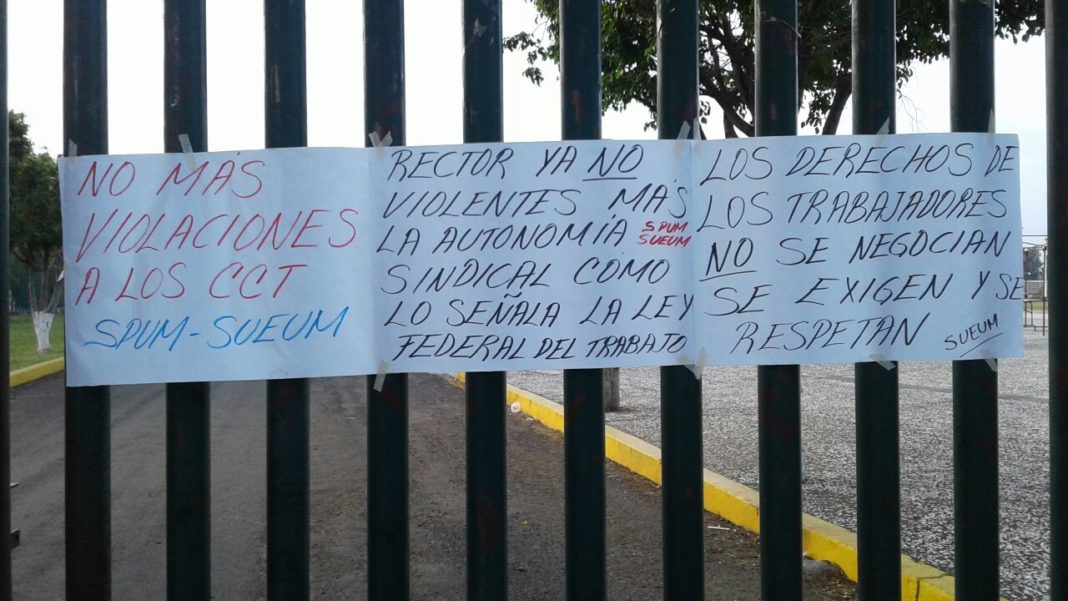 NO MÁS
VIOLACIONES
A LOS CCT
SPUM-SUEUM
RECTOR YA NO
VIOLENTES MÁS
LA AUTONOMÍA
SPUM
SUEUM
SINDICAL COMO
LO SEÑALA LA LEY
FEDERAL DEL TRABAJO
LOS DERECHOS DE
LOS TRABAJADORES
NO SE NEGOCIAN
SE EXIGEN Y SE
RESPETAN
SUEUM